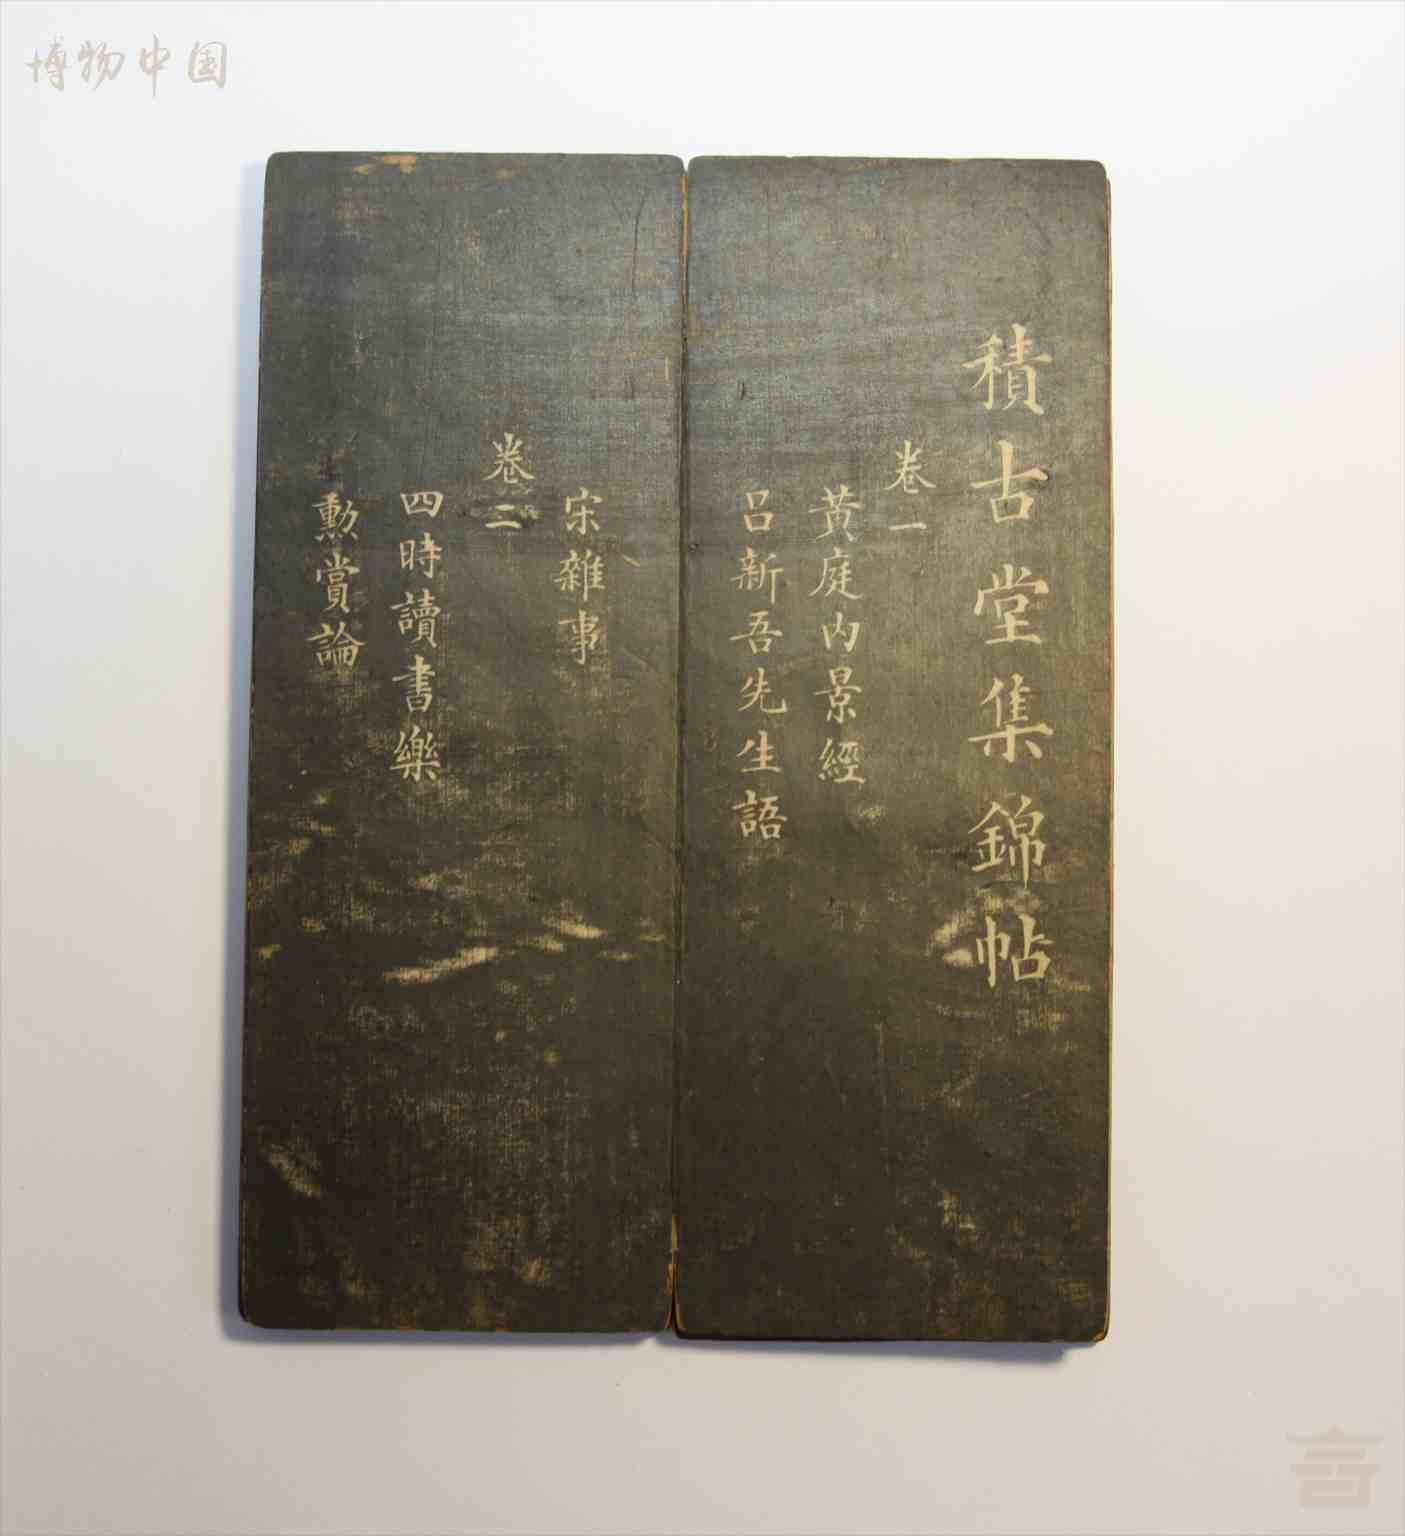 博物中国
積古堂集錦帖
卷一
黃庭內景經
吕新吾先生語
宋雜事
卷二
四時讀書樂
勳賞論